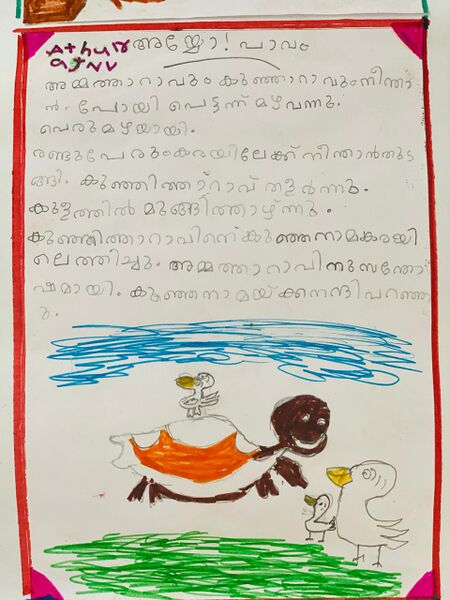 Athulr അയ്യോ! പാവം
atnv
അമ്മത്താറാവും കുഞ്ഞാറാവും നീന്താ
ൻ പോയി പെട്ടന്ന് മഴ വന്നു.
പെരുമഴയായി.
രണ്ടുപേരുംകരയിലേക്ക് നീന്താൻതുട
ങ്ങി. കുഞ്ഞിത്താറാവ് തളർന്നു.
കുളത്തിൽ മുങ്ങിത്താഴ്ന്നു.
കുഞ്ഞിത്താറാവിനെ കുഞ്ഞനാമകരയി
ലെത്തിച്ചു. അമ്മത്താറാവിനു സന്തോ
ഷമായി. കുഞ്ഞനാമയ്ക്കുനന്ദി പറഞ്ഞു